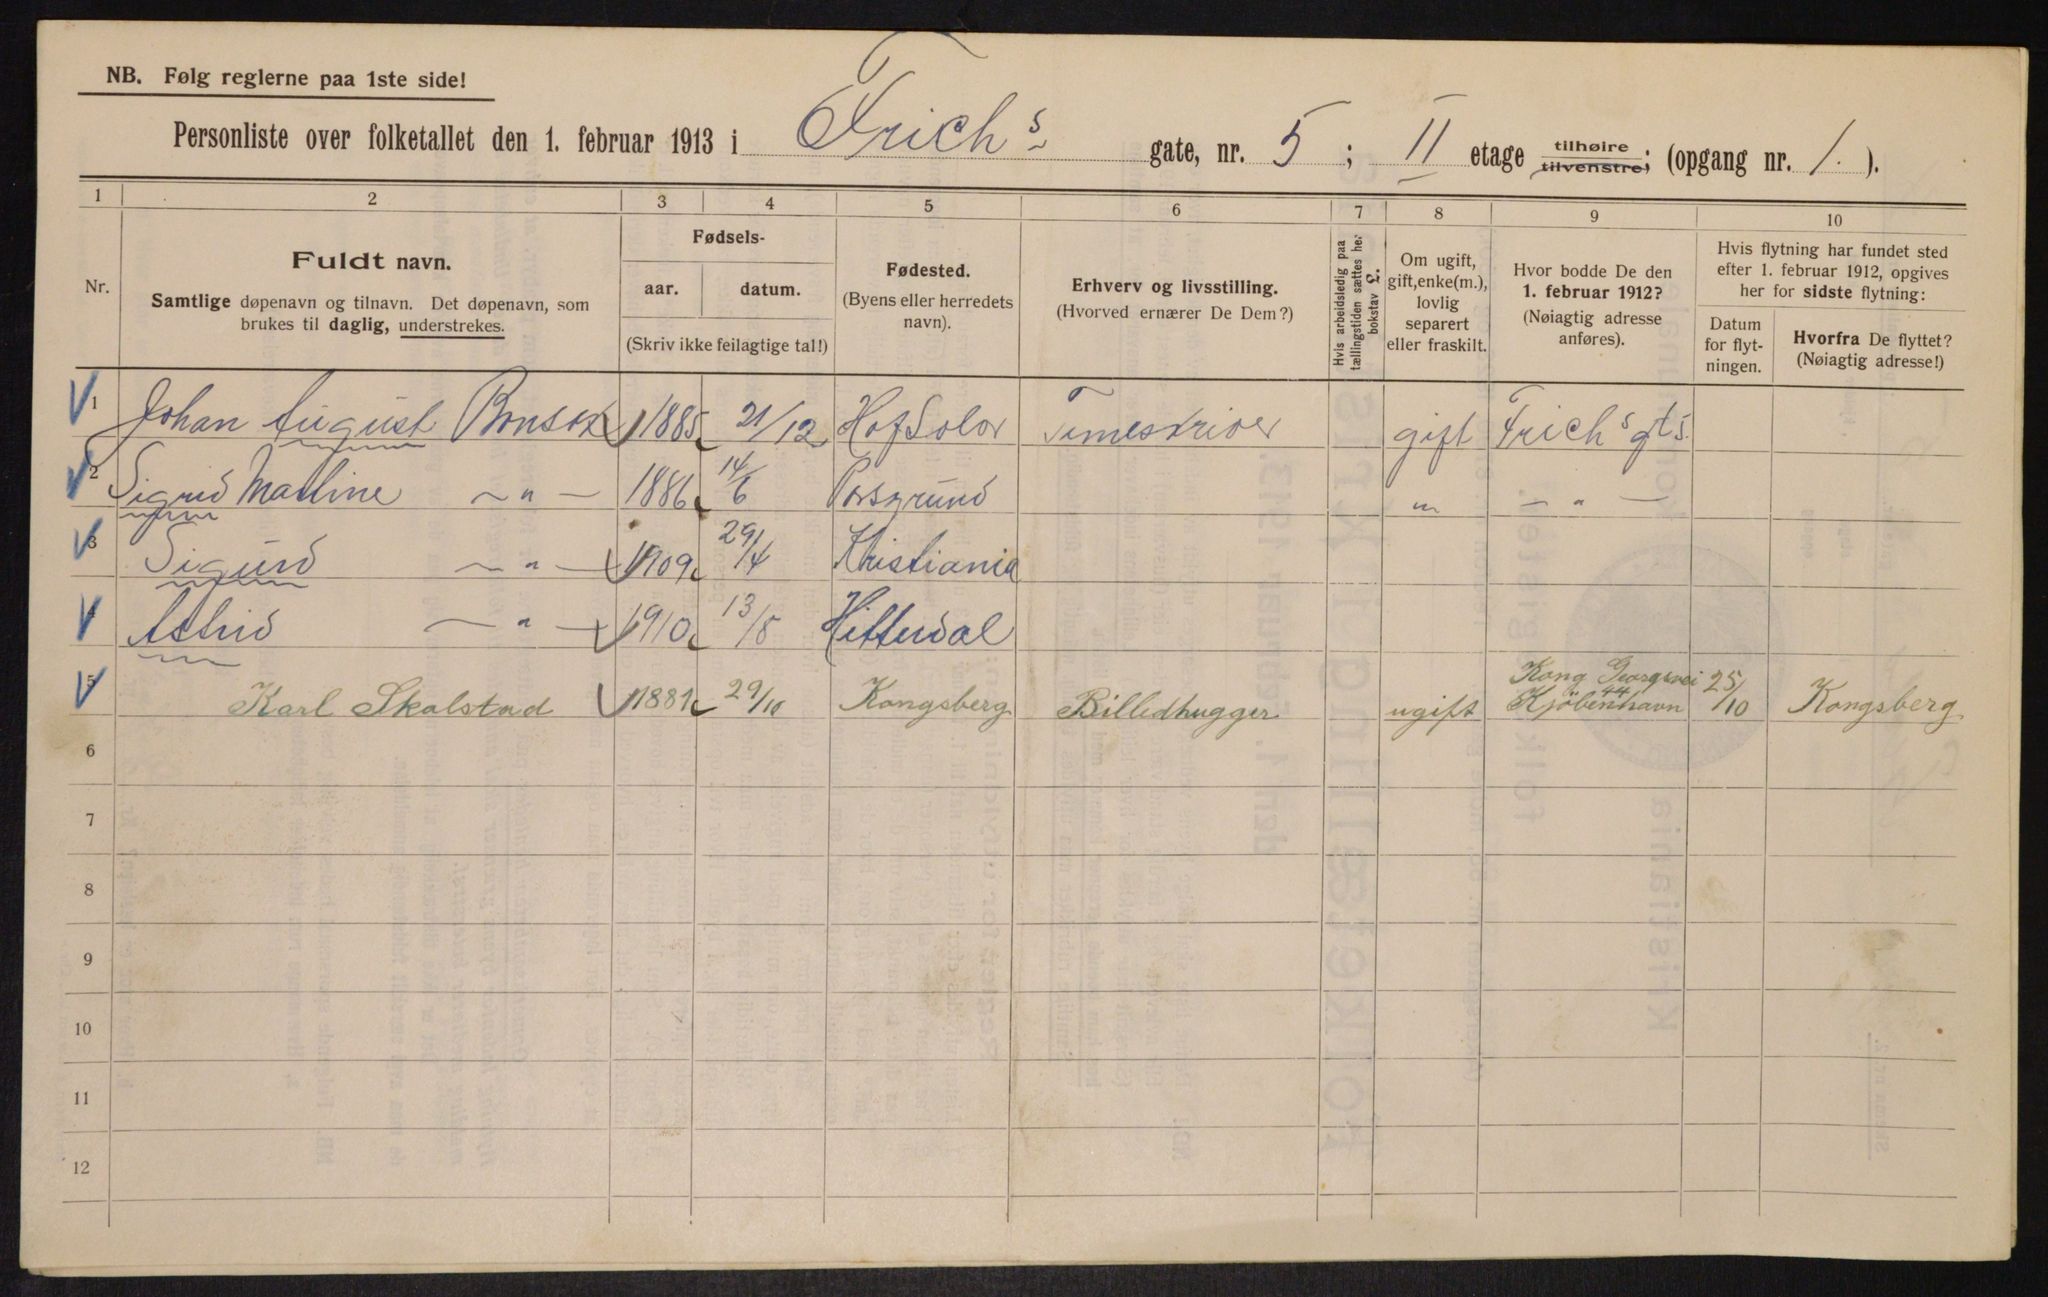 NB. Følg reglerne paa 1ste side!
Personliste over folketallet den 1. februar 1913 i Frich's gate, nr. 5 ; II etage tilhøire tilvenstre; (opgang nr. 1. ).
1 2 3 4 5 6 7 8 9 10
Nr.
Fuldt navn.
Samtlige døpenavn og tilnavn. Det døpenavn, som
brukes til daglig, understrekes.
Fødsels-
aar. datum.
(Skriv ikke feilagtige tal!)
Fødested.
(Byens eller herredets
navn).
Erhverv og livsstilling.
(Hvorved ernærer De Dem?)
Hvis arbeidsledig paa
tællingstiden sættes her
bokstav L.
Om ugift,
gift, enke(m.),
lovlig
separert
eller fraskilt.
Hvor bodde De den
1. februar 1912?
(Nøiagtig adresse
anføres).
Hvis flytning har fundet sted
efter 1. februar 1912, opgives
her for sidste flytning:
Datum
for flyt-
ningen.
Hvorfra De flyttet?
(Nøiagtig adresse!)
1 Johan August 1885 21/12 Hof Solør gift Frich's gt 5.
2 Sigrid Martine — " — 1886 14/6 Porsgrund " — " —
3 Sigurd — " — 1909 29/4 Kristiania
4 Astrid — " — 1910 13/8 Hitterdal
5 Karl Skalstad 1881 29/10 Kongsberg Billedhugger ugift Kong Georgsvei 44 Kjöbenhavn 25/10 Kongsberg
6
7
8
9
10
11
12